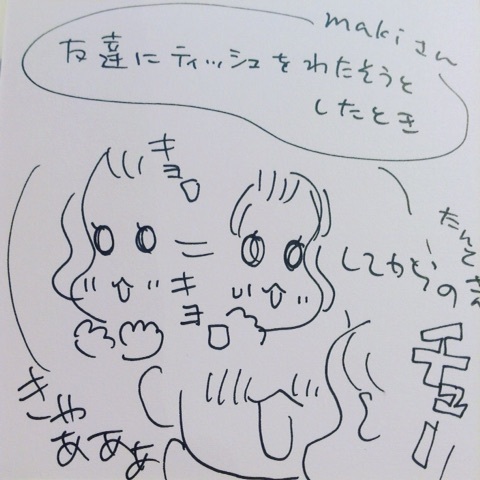 makiさん
友達にティッシュをわたそうと
したとき
キョロ
キョロ
してからの
きゃ
あああ